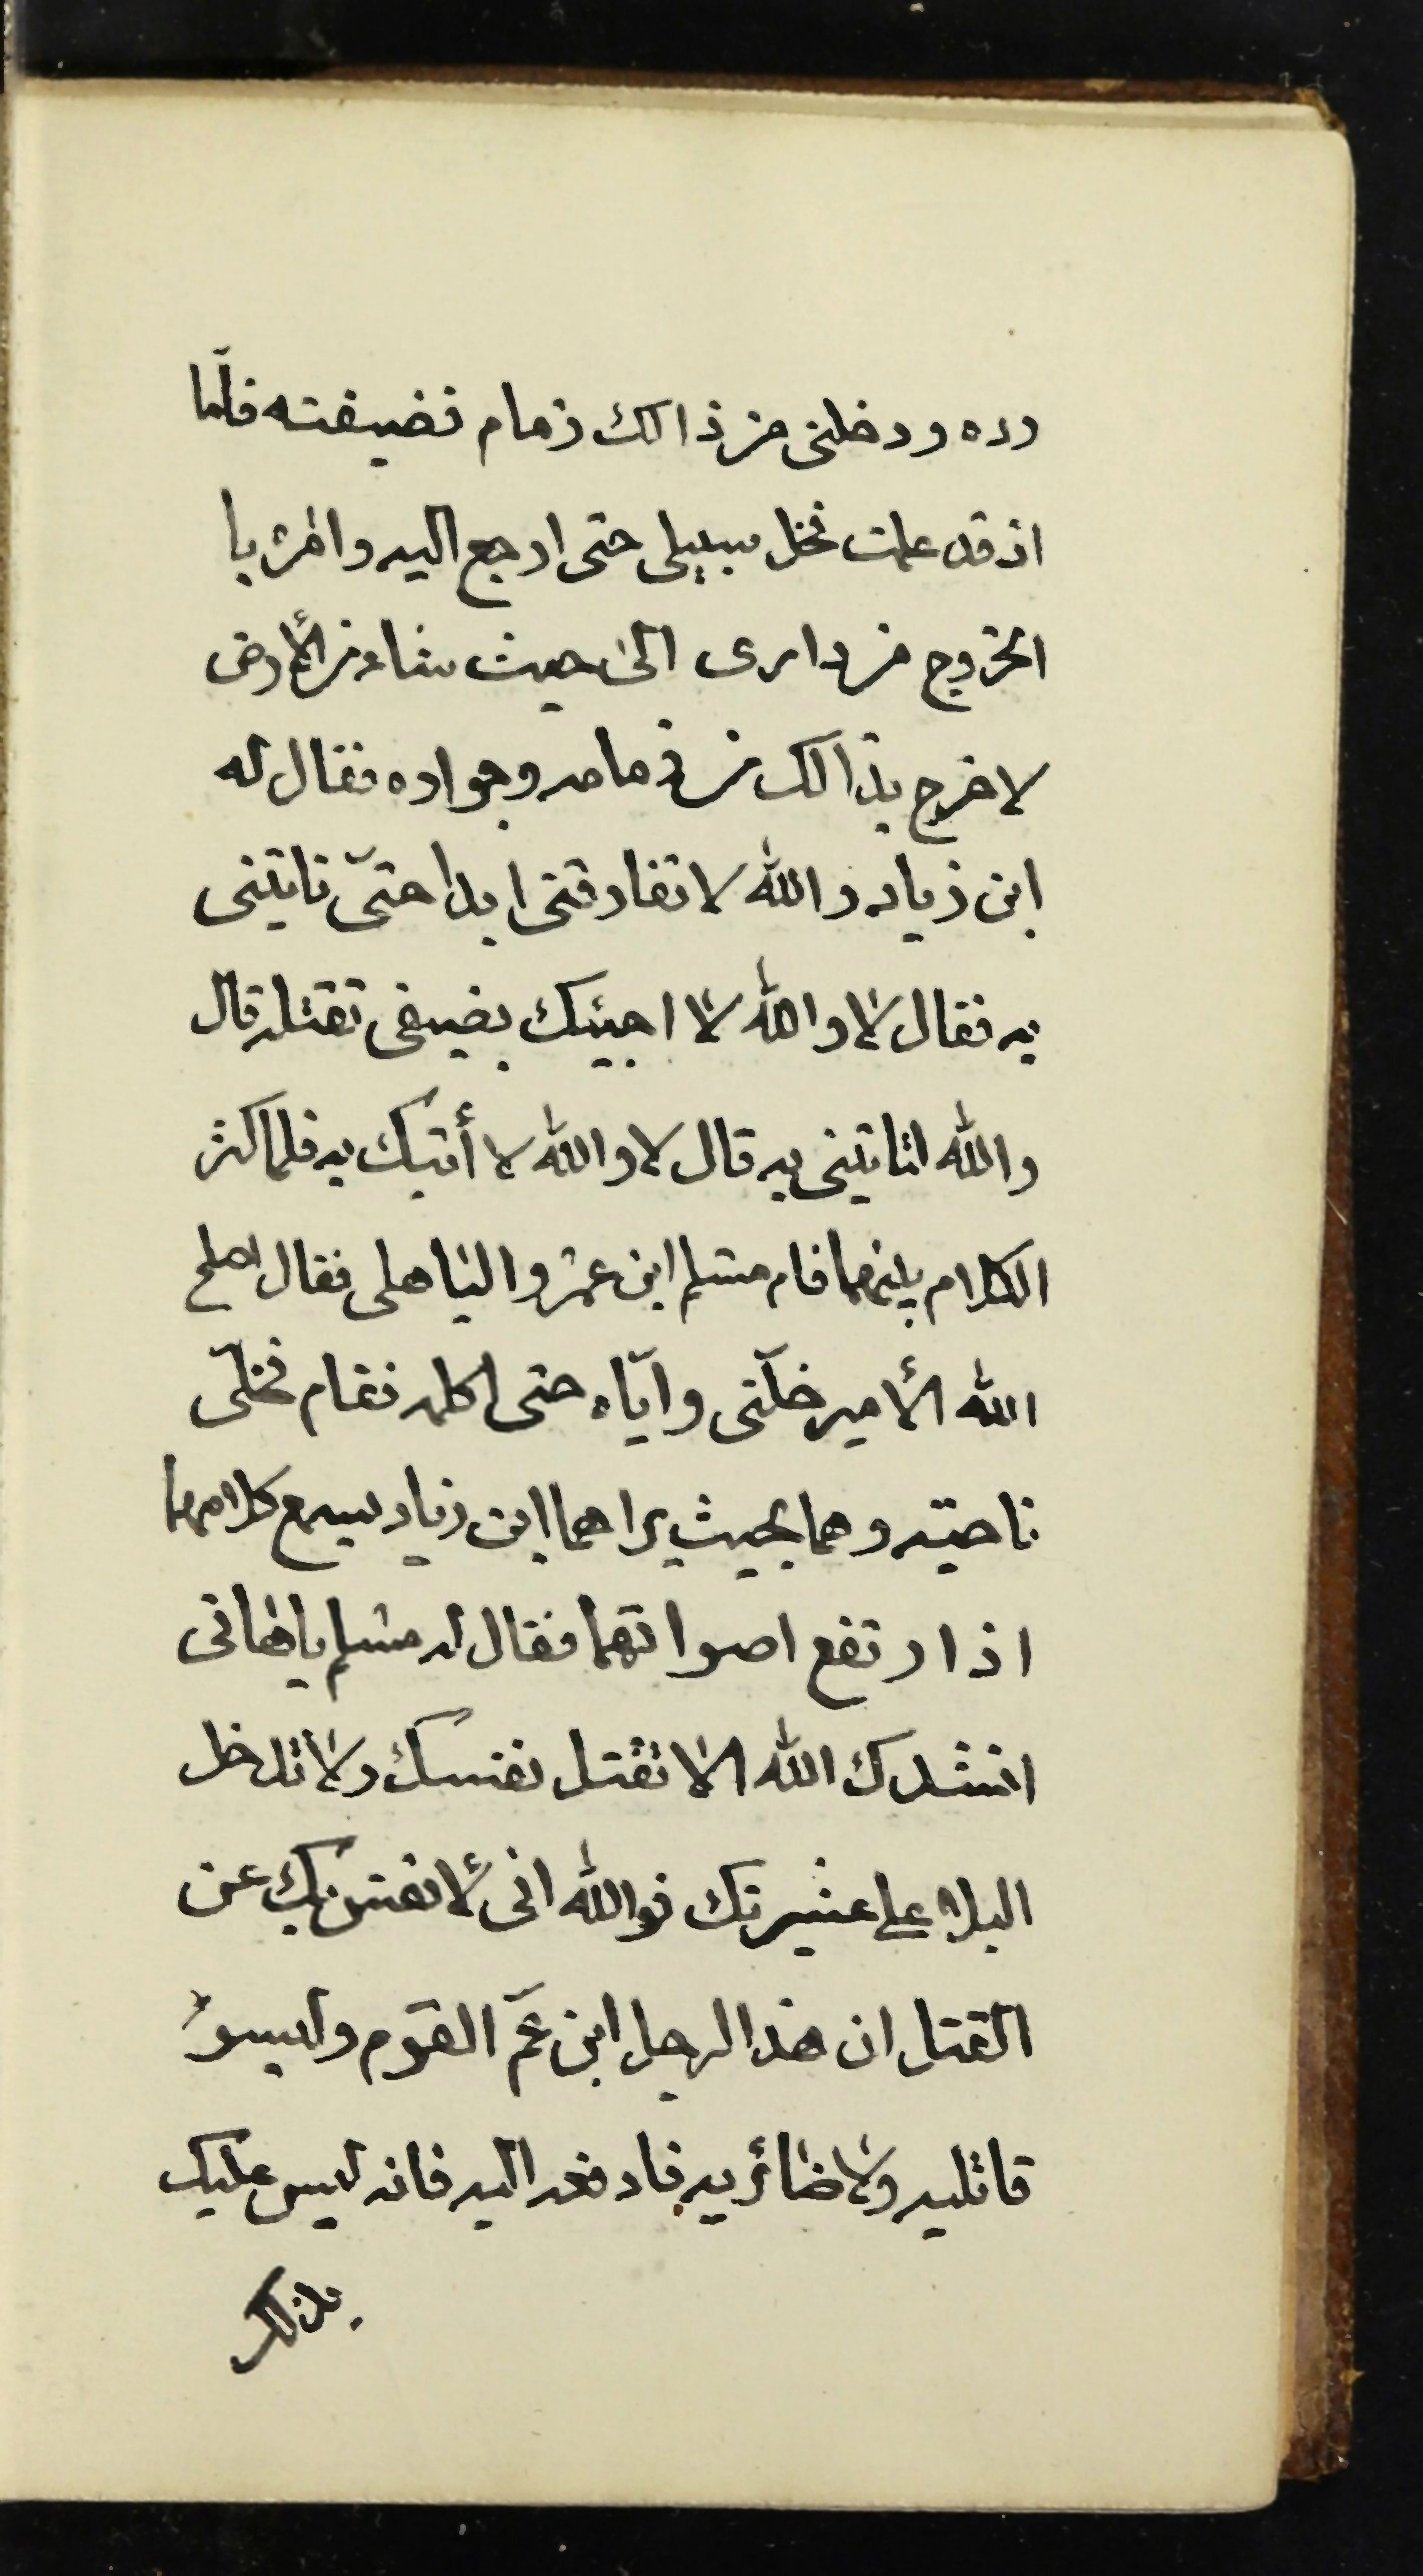 رده ودخلنى من ذالك ذمام فضيفته فلّما
اذ قد علمت فخل سبيلى حتى ارجع اليه وامره با
الخروج من دارى الى حيث شاء من الأرض
لاخرج بذالك من ذمامه وجواره فقال له
ابن زياد والله لا تفارقنى ابدا حتىّ تاتينى
به فقال لا والله لا اجيئك بضيفى تقتله قال
والله لتاتينى به قال لا والله لا أتيك به فلما كثر
الكلام بينهما قام مسلم ابن عمرو الباهلى فقال اصلح
الله الأمير خلّنى وايّاه حتى اكلمه فقام فخلّى
ناحيته وهما بحيث يراهما ابن زياد يسمع كلامهما
اذا رتفع اصواتهما فقال له مسلم يا هانى
انشدك الله الا تقتل نفسك ولا تدخل
البلاء على عشيرتك فوالله انى لأنفس بك عن
القتل ان هذا الرجل ابن عمّ القوم وليسوا
قاتليه ولا ضائريه فادفعه اليه فانه ليس عليك
بذالك